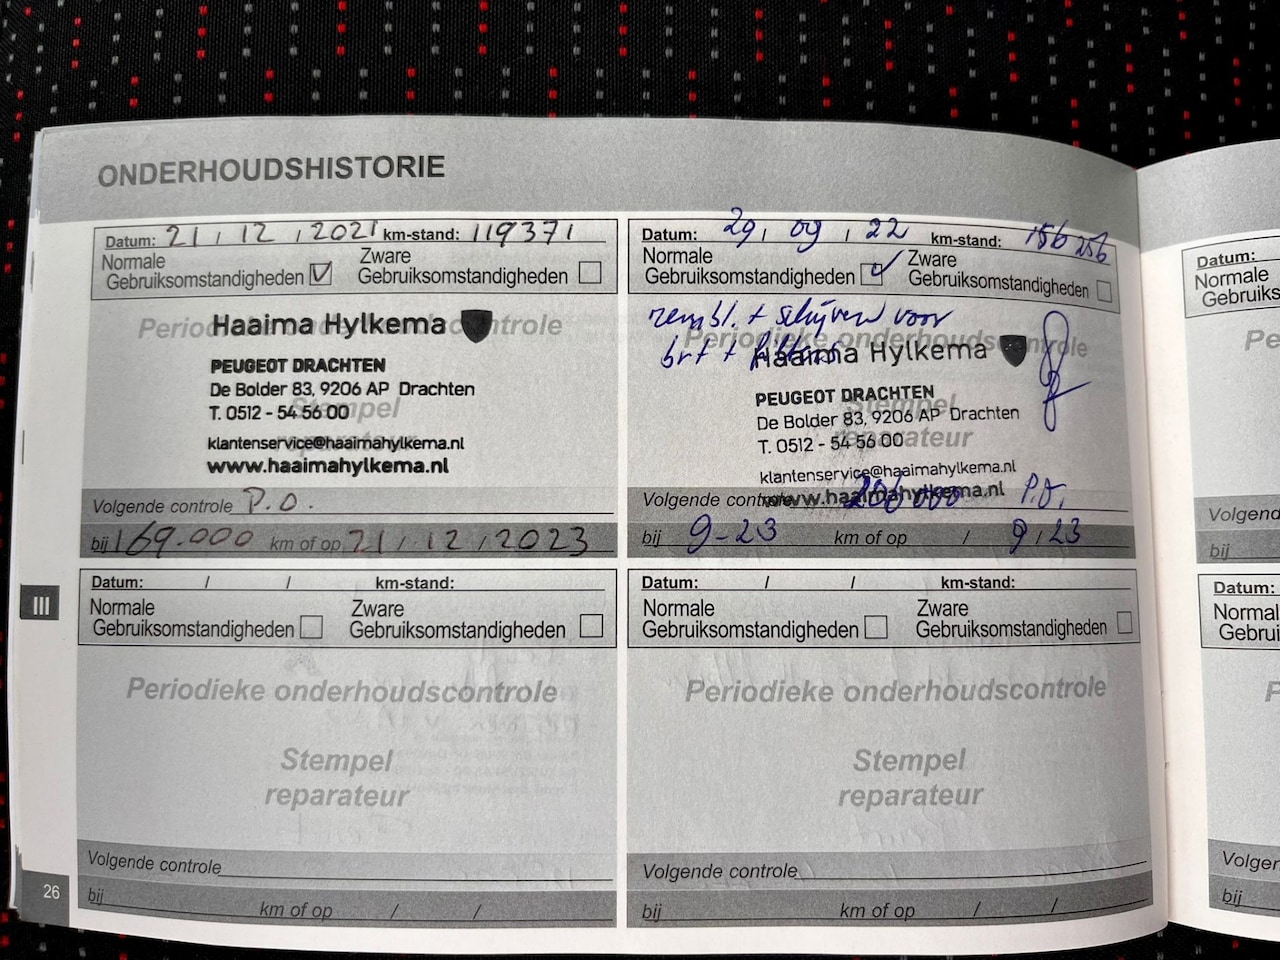 ONDERHOUDSHISTORIE
Datum: 21 / 12 / 2021 km-stand: 119371
Normale
Gebruiksomstandigheden
Zware
Gebruiksomstandigheden
Periodieke onderhoudscontrole
Haaima Hylkema
PEUGEOT DRACHTEN
De Bolder 83, 9206 AP Drachten
T. 0512 - 54 56 00
Stempel
reparateur
klantenservice@haaimahylkema.nl
www.haaimahylkema.nl
Volgende controle P.O.
bij 169.000 km of op 21 / 12 / 2023
Datum: 29 / 09 / 22 km-stand: 156256
Normale
Gebruiksomstandigheden
Zware
Gebruiksomstandigheden
rembl. + schijven voor
brt + filters
Periodieke onderhoudscontrole
Haaima Hylkema
PEUGEOT DRACHTEN
De Bolder 83, 9206 AP Drachten
T. 0512 - 54 56 00
Stempel
reparateur
klantenservice@haaimahylkema.nl
www.haaimahylkema.nl
Volgende controle 206000 P.O.
bij 9-23 km of op / 9 / 23
Datum: / / km-stand:
Normale
Gebruiksomstandigheden
Zware
Gebruiksomstandigheden
Periodieke onderhoudscontrole
Stempel
reparateur
Volgende controle
bij km of op / /
Datum: / / km-stand:
Normale
Gebruiksomstandigheden
Zware
Gebruiksomstandigheden
Periodieke onderhoudscontrole
Stempel
reparateur
Volgende controle
bij km of op / /
III
26
Datum:
Normale
Gebruiks
Pe
Volgend
bij
Datum:
Normal
Gebrui
P
Volgen
bij